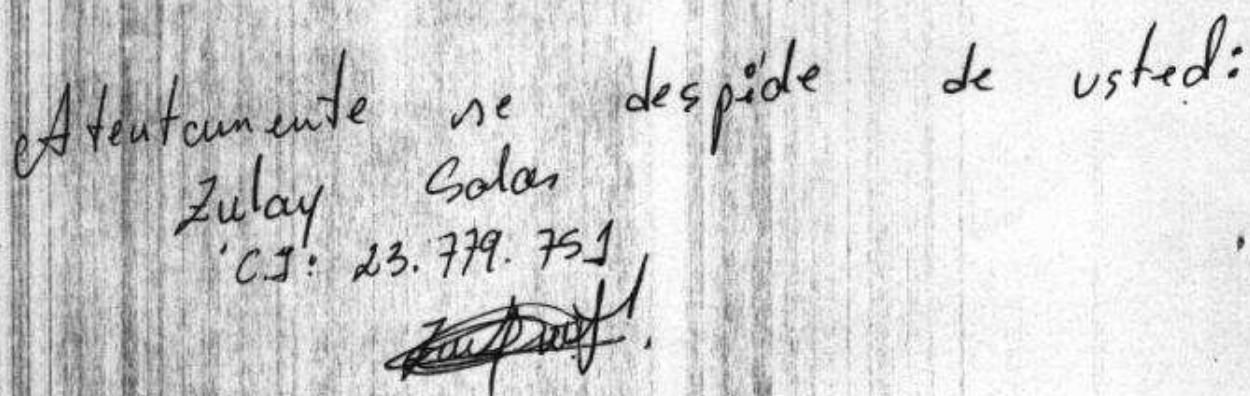 Atentamente se despide de usted:
Zulay Salas
C.I: 23.779.751